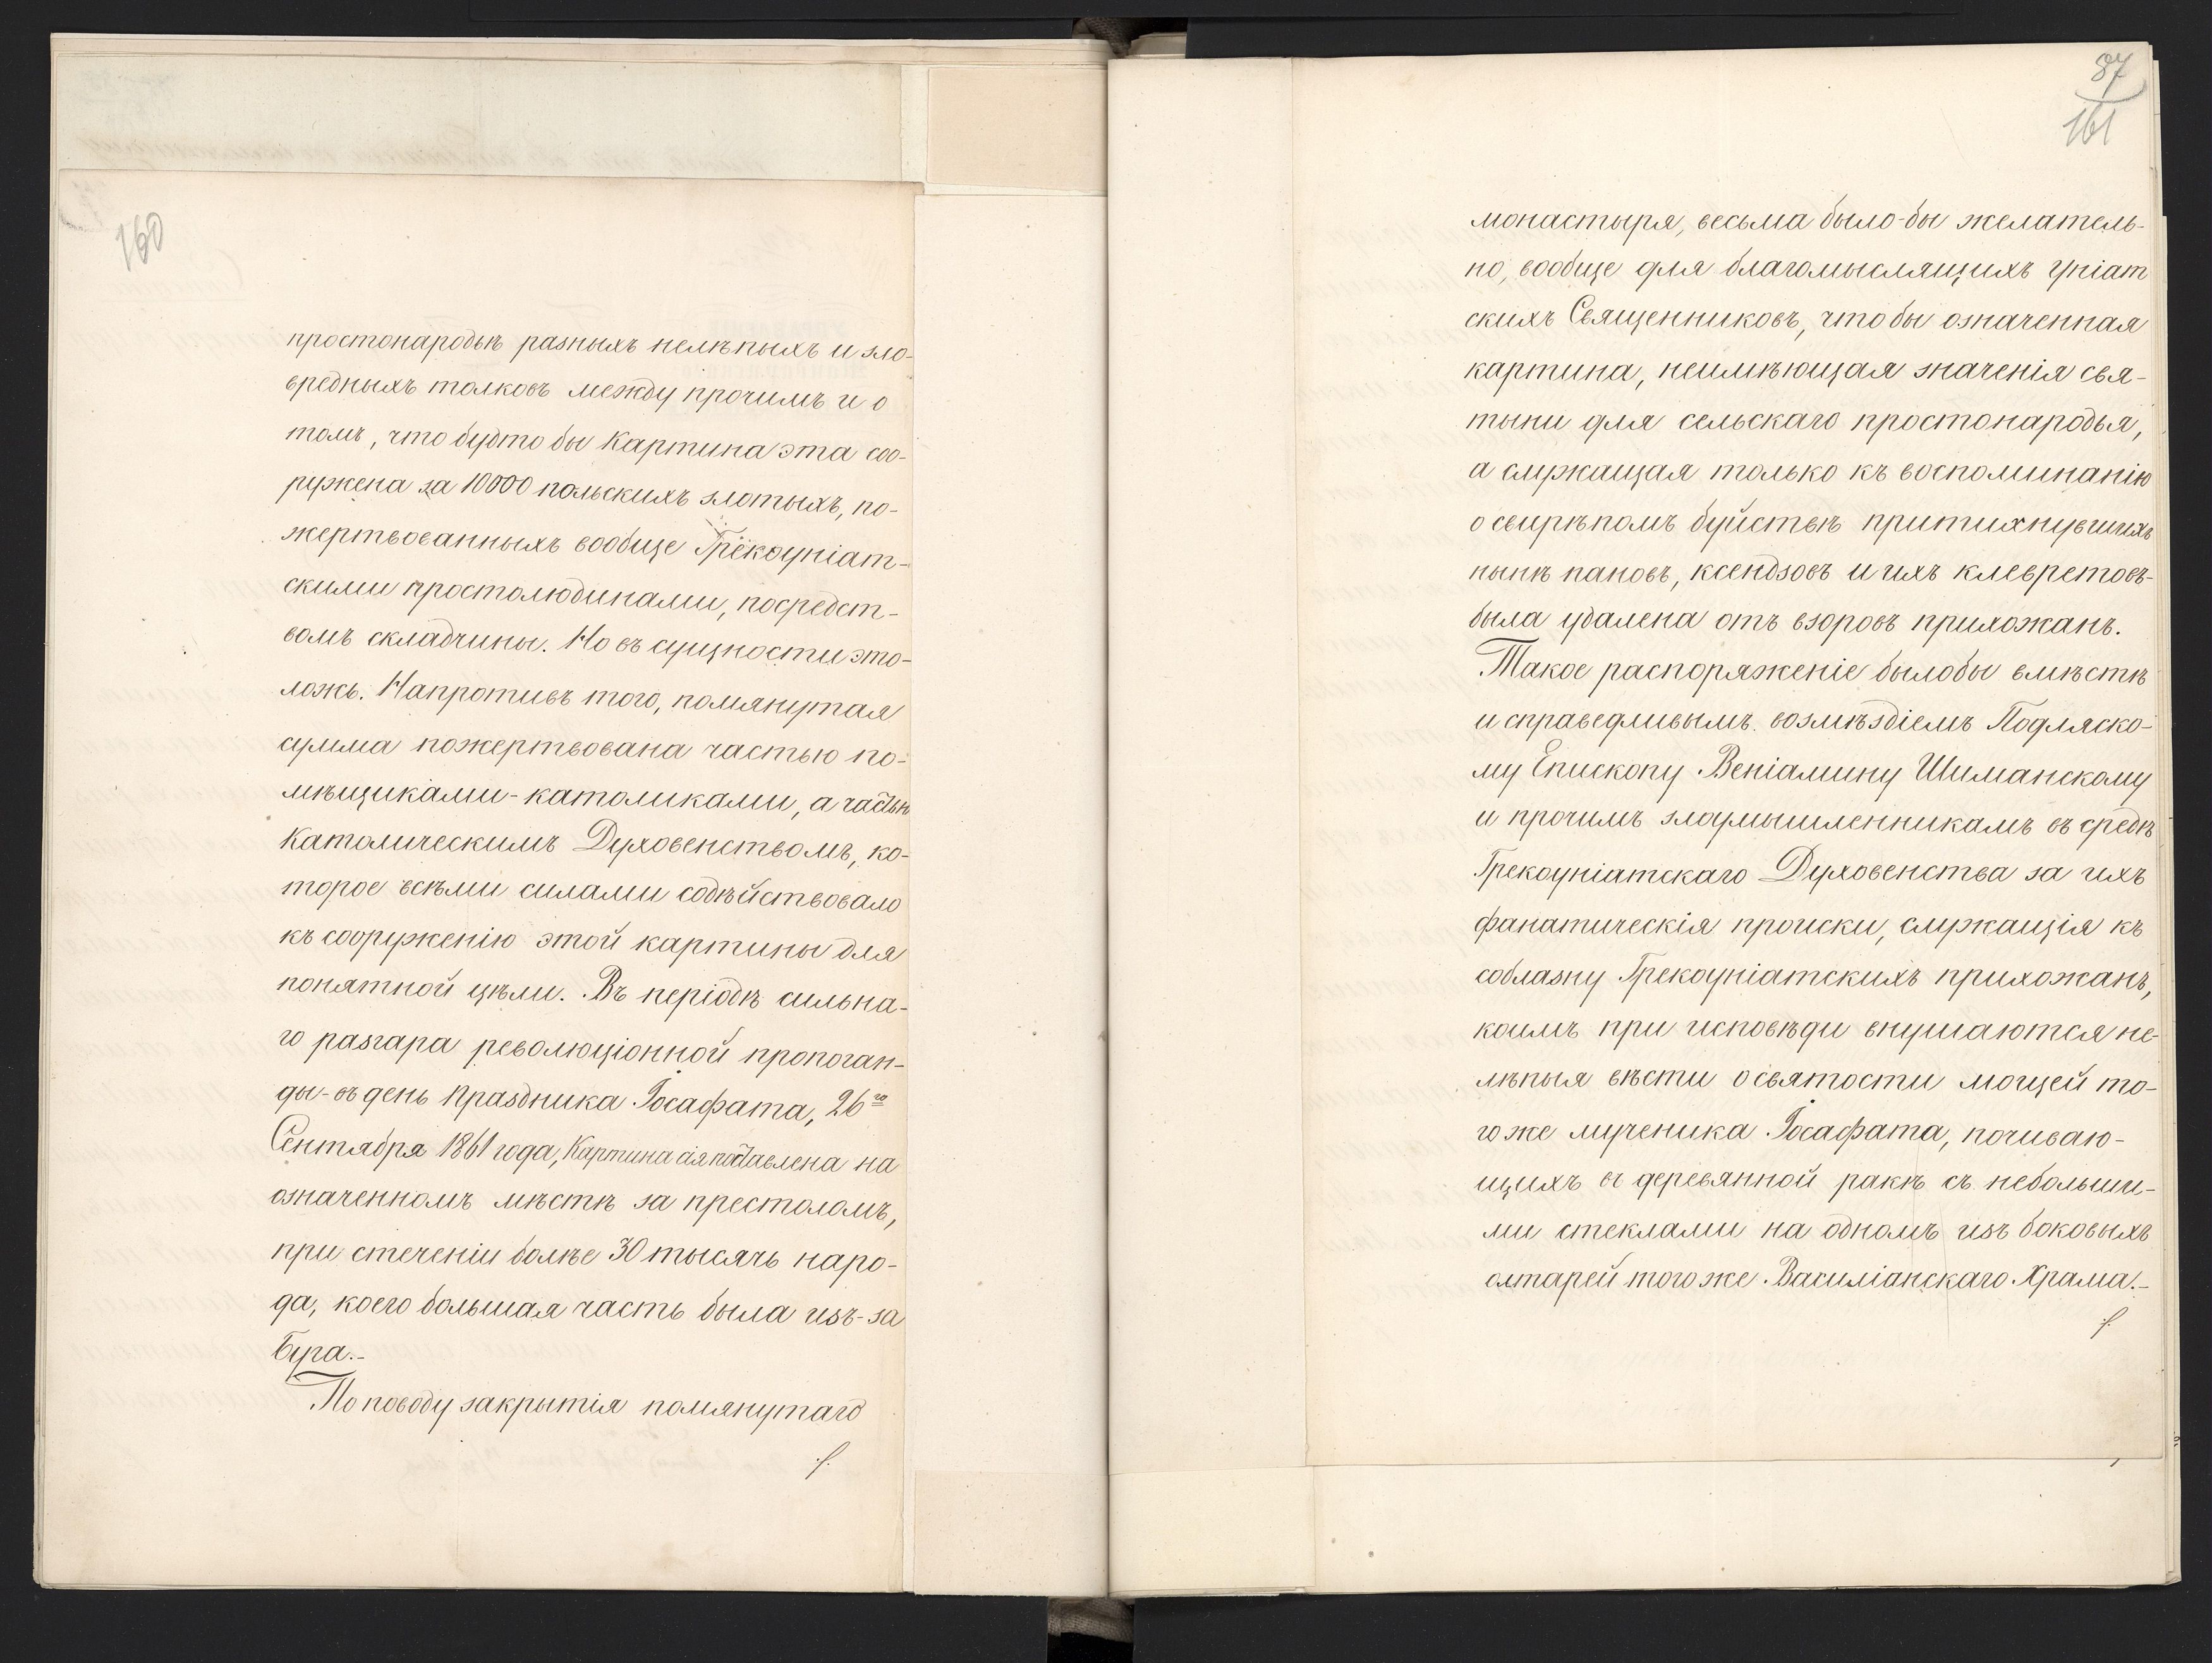 160
простонародьѣ разныхъ нелѣпыхъ и зло-
вредныхъ толковъ между прочимъ и о
томъ, что будто бы Картина эта соо-
ружена за 10000 польскихъ злотыхъ, по-
жертвованныхъ вообще Грекоуніат-
скими простолюдинами, посредст-
вомъ складчины. Но въ сущности это-
ложь. Напротивъ того, помянутая
сумма пожертвована частью по-
мѣщиками-католиками, а частью
Католическимъ Духовенствомъ, ко-
торое всѣми силами содѣйствовало
къ сооруженію этой картины для
понятной цѣли. Въ періодѣ сильна-
го разгара революціонной пропоган-
ды-въ день Праздника Іосафата, 26го
Сентября 1861 года, Картина сія поставлена на
означенномъ мѣстѣ за престоломъ,
при стеченіи болѣе 30 тысячь наро-
да, коего большая часть была изъ-за
Буга.-
По поводу закрытія помянутаго
87
161
монастыря, весьма было-бы желатель-
но, вообще для благомыслящихъ Уніат
скихъ Священниковъ, что бы означенная
картина, неимѣющая значенія свя-
тыни для сельскаго простонародья,
а служащая только къ воспоминанію
о свирѣпомъ буйствѣ притихнувшихъ
нынѣ пановъ, ксендзовъ и ихъ клевретовъ-
была удалена отъ взоровъ прихожанъ.
Такое распоряженіе былобы вмѣстѣ
и справедливымъ возмѣздіемъ Подляско-
му Епископу Веніамину Шиманскому
и прочимъ злоумышленникамъ въ средѣ
Грекоуніатскаго Духовенства за ихъ
фанатическія происки, служащія къ
соблазну Грекоуніатскихъ прихожанъ,
коимъ при исповѣди внушаются не-
лѣпыя вѣсти о святости мощей то-
го же мученика Іосафата, почиваю-
щихъ въ деревянной ракѣ съ небольши-
ми стеклами на одномъ изъ боковыхъ
олтарей того же Василіанскаго Храма.-